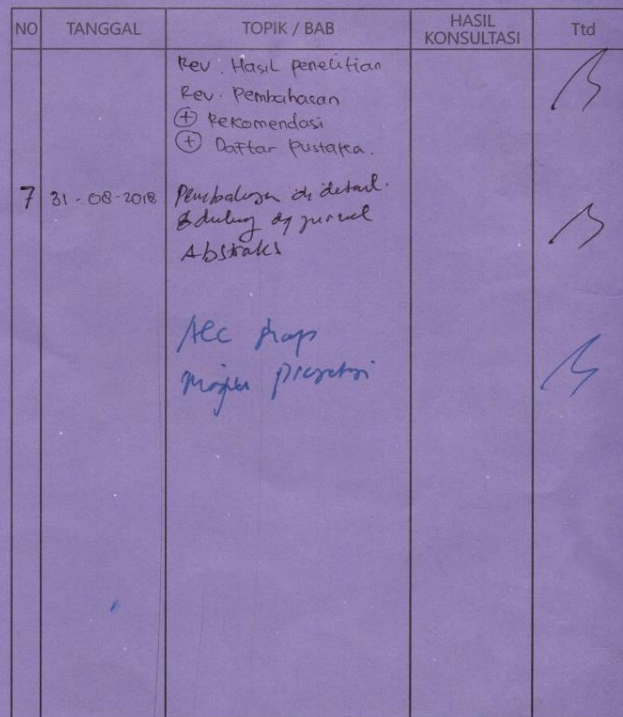 NO TANGGAL TOPIK / BAB HASIL KONSULTASI Ttd
Rev. Hasil penelitian
Rev. Pembahasan
+ Rekomendasi
+ Daftar pustaka.
7 31-08-2018 Pembahasan di detail.
jurnal
Abstraks
Acc